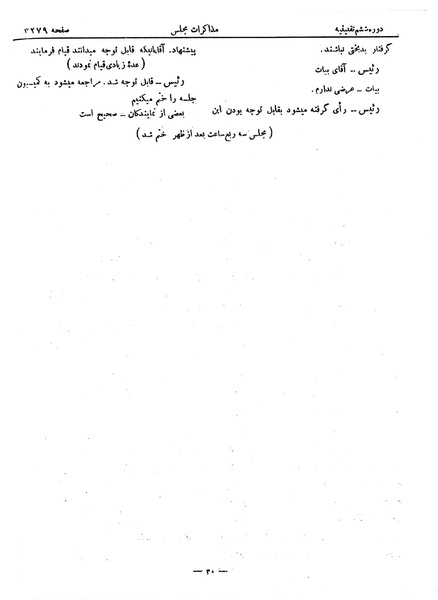 دوره ششم تقنینیه
مذاکرات مجلس
صفحه ۳۲۷۹
گرفتار بدبختی نباشند.
رئیس ــ آقای بیات
بیات ــ عرضی ندارم.
رئیس ــ رأی گرفته میشود بقابل توجه بودن این
پیشنهاد. آقایانیکه قابل توجه میدانند قیام فرمایند
(عدهٔ زیادی قیام نمودند)
رئیس ــ قابل توجه شد. مراجعه میشود به کمیسیون
جلسه را ختم میکنیم
بعضی از نمایندگان ــ صحیح است
(مجلس سه ربع ساعت بعد از ظهر ختم شد)
— ۳۰ —